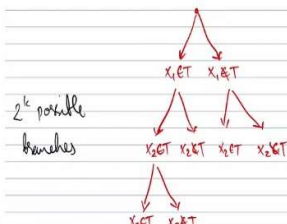 x₁∈T x₁∉T
2ᵏ possible
branches
x₂∈T x₂∉T x₂∈T x₂∉T
x₃∈T x₃∉T